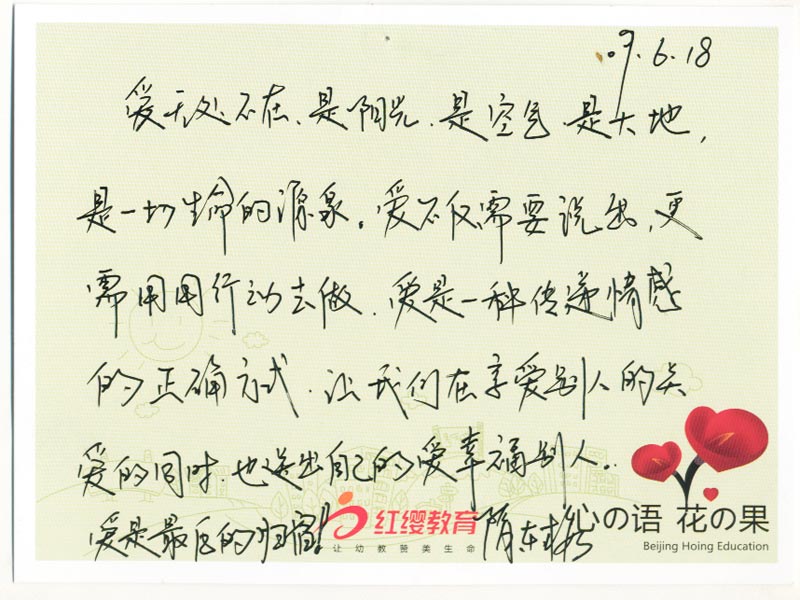 09.6.18
爱无处不在、是阳光、是空气、是大地，
是一切生命的源泉。爱不仅需要说出，更
需用用行动去做、爱是一种传递情感
的正确方式、让我们在享受别人的关
爱的同时、也送出自己的爱幸福别人..
爱是最后的归宿!
红缨教育
让幼教赞美生命
心の语 花の果
Beijing Hoing Education